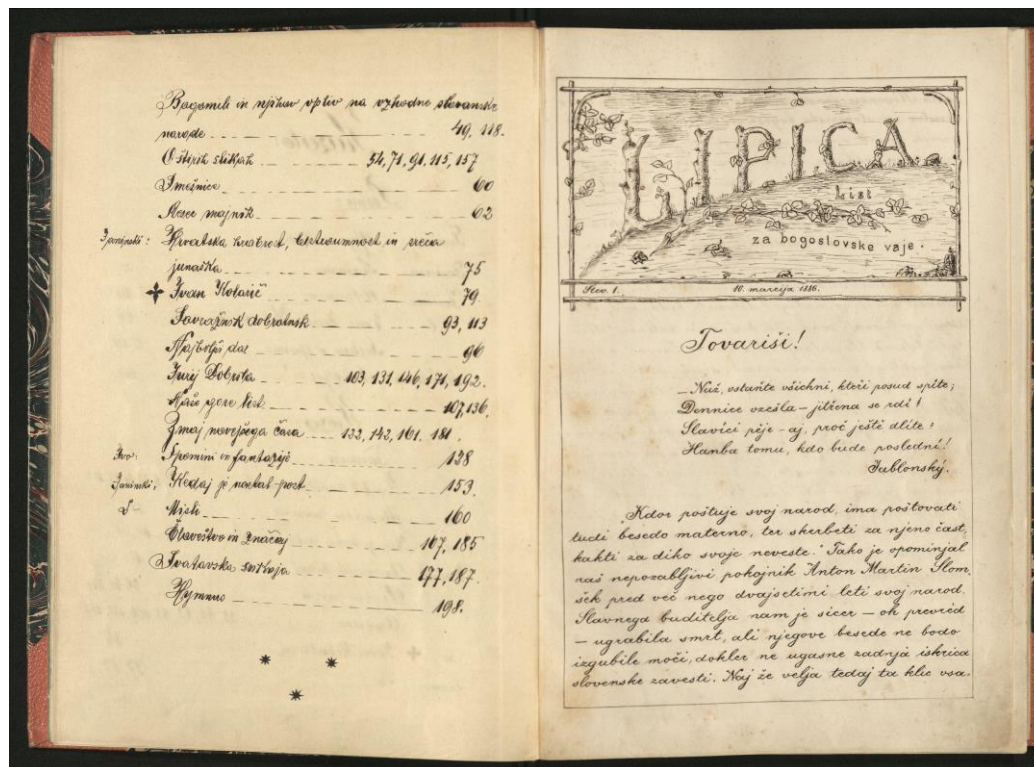 Bogomili in njihov vpliv na vzhodne slovanske
narode 49, 118.
O štirih stikah 54, 71, 91, 115, 157
Smešnice 60
Mesec majnik 62
Hrvatska hrabrost, in sreča
junaška 75
✝ Ivan Kolarič 79.
Sovražnik dobrotnik 93, 113
Najboljši dar 96
Jurij Dobrila 103, 131, 146, 171, 192.
Naše gore list 107, 136.
Zmaj novejšega časa 132, 142, 161, 181.
Ivo: Spomini in fantazije 138
Kedaj je nastal post 153.
S— Misli 160
Človeštvo in značaj 167, 185
177, 187.
Hymnus 198.
* * *
LIPICA.
List
za bogoslovske vaje.
Štev. 1. 10. marcija 1886.
Tovariši!
— Nuž, vstaňte všichni, kteří posud spíte;
Dennice vzešla – jitřena se rdí!
Slavíci pěje – aj, proč ještě dlíte?
Hanba tomu, kdo bude poslední!
Jablonský.
„Kdor poštuje svoj narod, ima poštovati
tudi besedo materno, ter skerbeti za njeno čast,
kakti za diko svoje neveste.“ Tako je opominjal
naš nepozabljivi pokojnik Anton Martin Slom,
šek pred več nego dvajsetimi leti svoj narod.
Slavnega buditelja nam je sicer – oh prevred
– ugrabila smrt, ali njegove besede ne bodo
izgubile moči, dokler ne ugasne zadnja iskrica
slovenske zavesti. Naj že velja tedaj ta klic vsa,